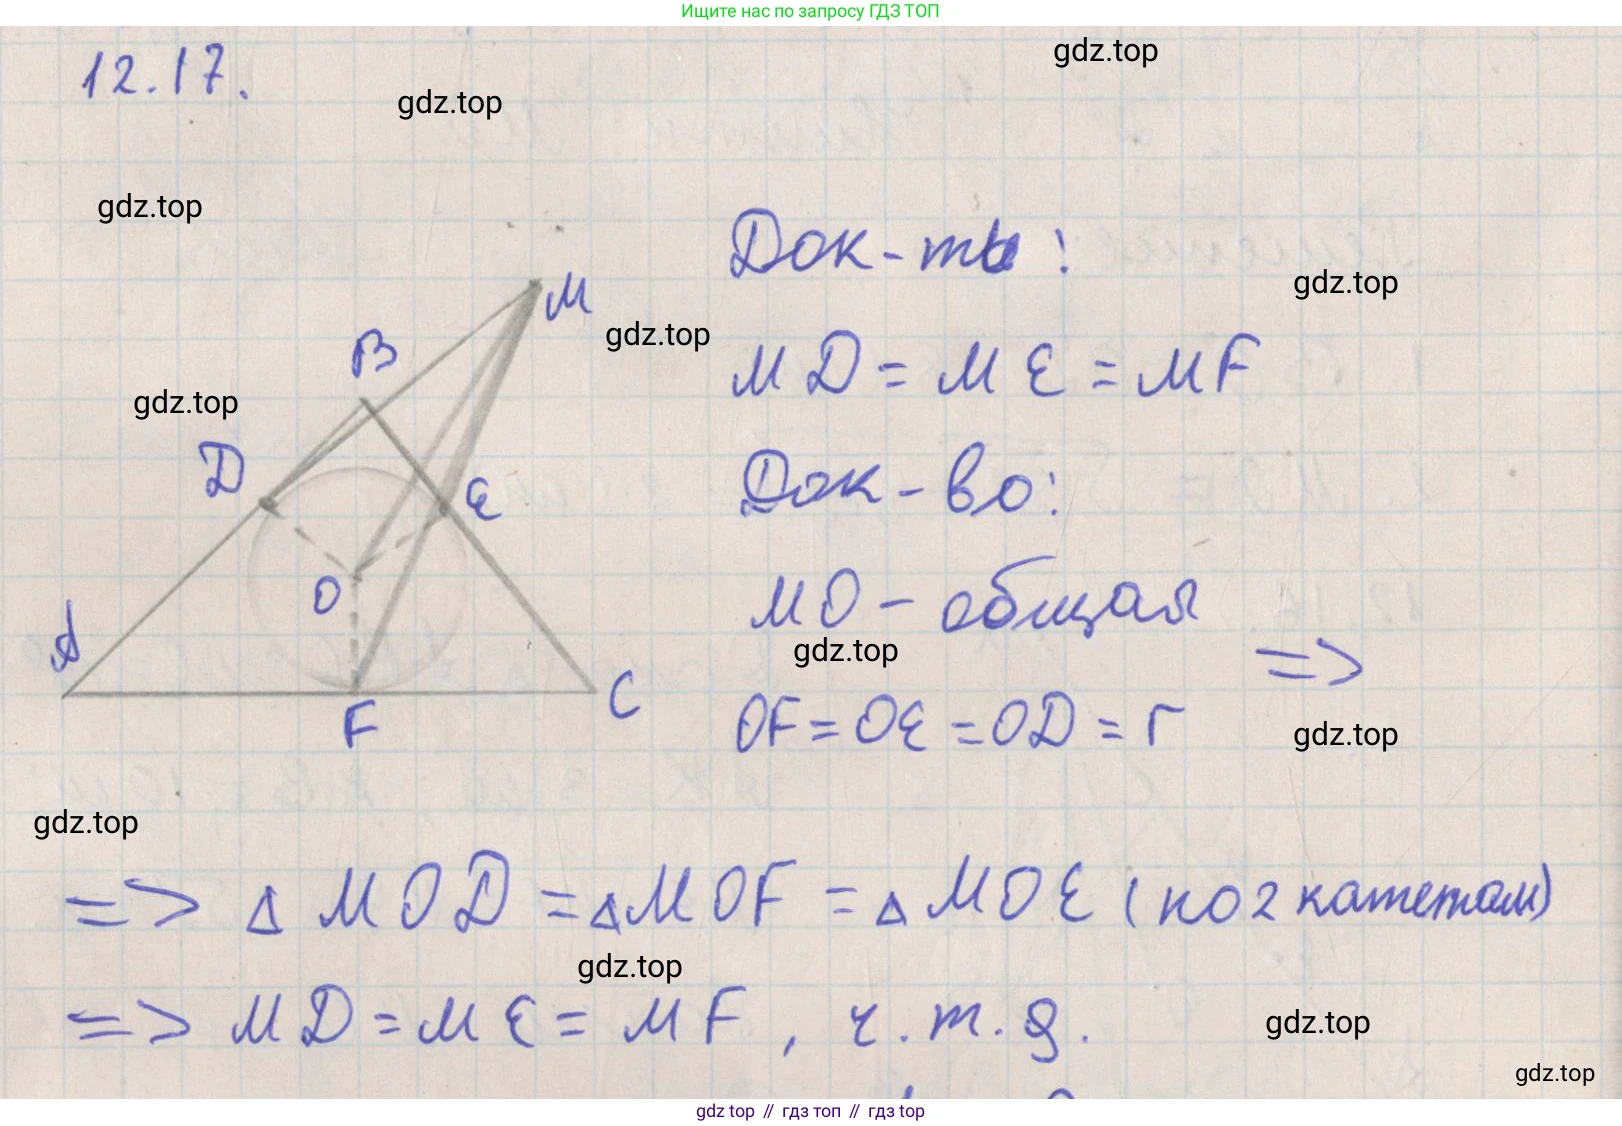 Ищите нас по запросу ГДЗ ТОП
12.17.
gdz.top
gdz.top
gdz.top
Док-ть:
gdz.top
M
gdz.top
B
MD = ME = MF
gdz.top
D
E
Док-во:
O
MO - общая
A
gdz.top
=>
F
C
OF = OE = OD = r
gdz.top
gdz.top
=> Δ MOD = Δ MOF = Δ MOE (по 2 катетам)
gdz.top
=> MD = ME = MF, ч.т.д.
gdz.top
gdz.top
gdz top // гдз топ // гдз top